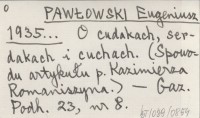 PAWŁOWSKI Eugeniusz
1935... O cudakach, ser-
dakach i cuchach. (Spowo-
du artykułu p. Kazimierza
Romaniszyna.) — Gaz.
Podh. 23, nr 8.